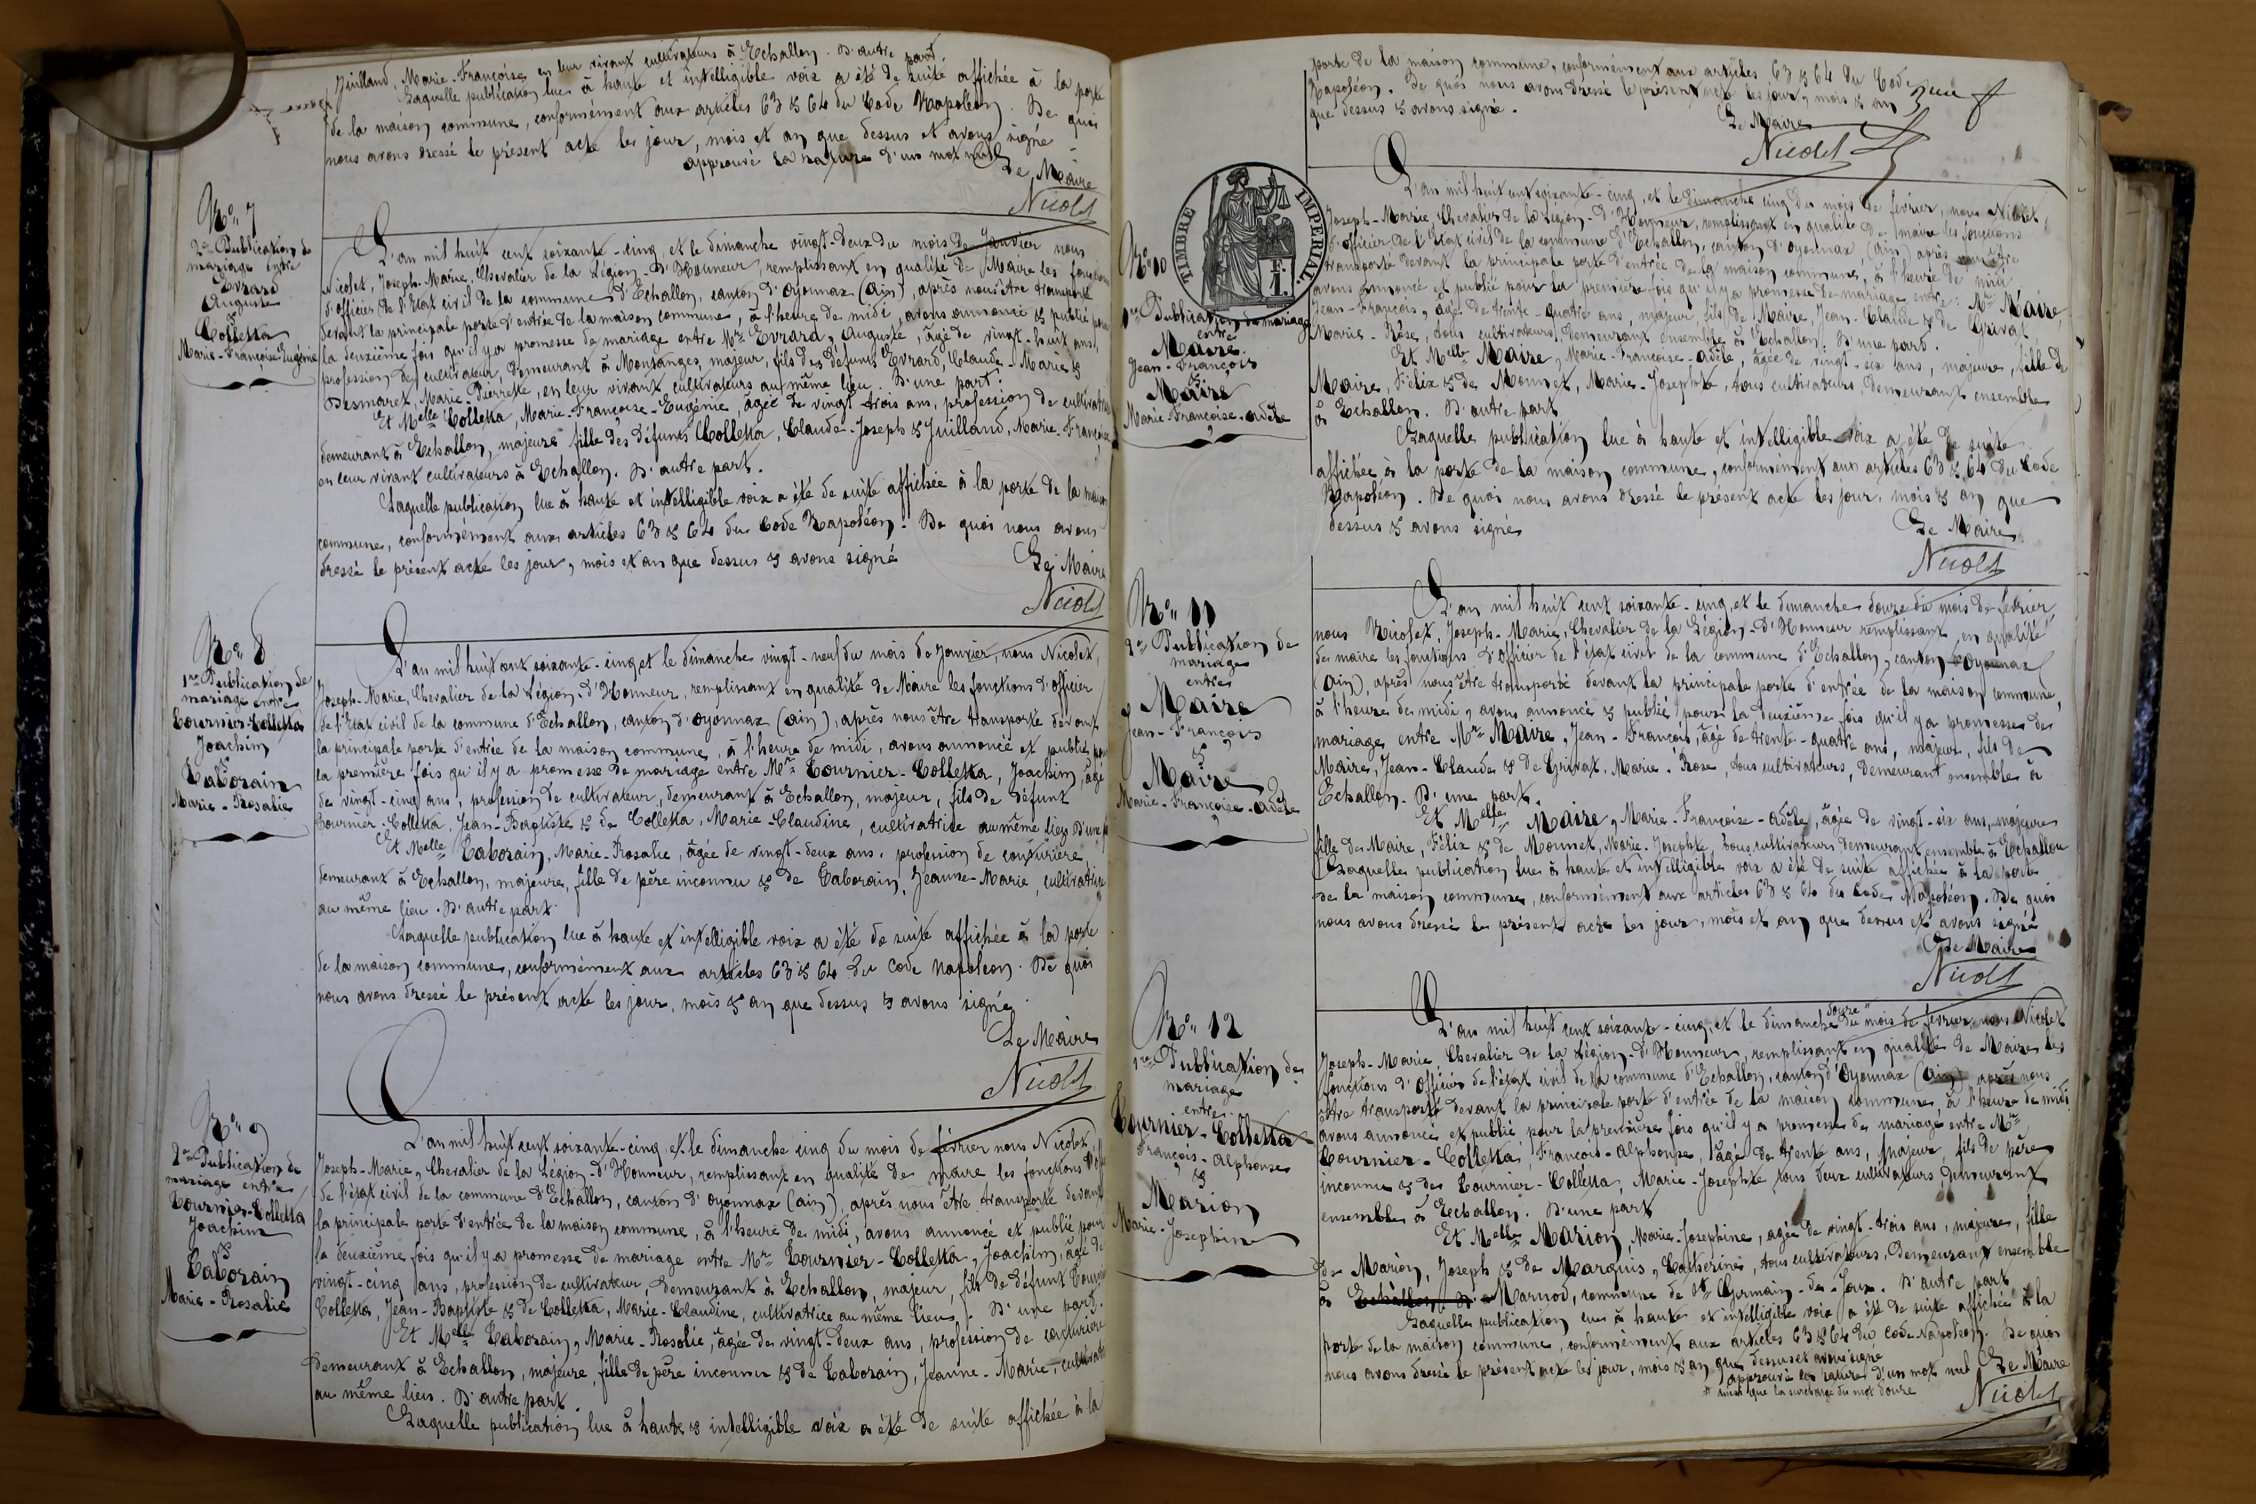 Juilland, Marie-Françoise en leur vivant cultivateurs à Echallon. D'autre part.
Laquelle publication lue à haute et intelligible voix a été de suite affichée à la porte
de la maison commune, conformément aux articles 63 & 64 du Code Napoléon. De quoi
nous avons dressé le présent acte les jour, mois et an que dessus et avons signé
approuvé la rature d'un mot nul
Le Maire
Nicolet
No 7
2me Publication de
mariage entre
Evrard
Auguste
&
Colletta
Marie-Françoise-Eugénie
L'an mil huit cent soixante-cinq, et le dimanche vingt-deux du mois de Janvier nous
Nicolet, Joseph-Marie, Chevalier de la Légion-d'Honneur, remplissant en qualité de Maire les fonctions
d'officier de l'Etat civil de la commune d'Echallon, canton d'Oyonnax (Ain), après nous être transporté
devant la principale porte d'entrée de la maison commune, à l'heure de midi, avons annoncé & publié pour
la deuxième fois qu'il y a promesse de mariage entre Mr Evrard, Auguste, âgé de vingt-huit ans,
profession de cultivateur, demeurant à Montanges, majeur, fils des défunts Evrard, Claude-Marie &
Desmaret, Marie-Pierrette, en leur vivant cultivateurs au même lieu. D'une part.
Et Melle Colletta, Marie-Françoise-Eugénie, âgée de vingt-trois ans, profession de cultivatrice
demeurant à Echallon, majeure fille des défunts Colletta, Claude-Joseph & Juilland, Marie-Françoise
en leur vivant cultivateurs à Echallon. D'autre part.
Laquelle publication lue à haute et intelligible voix a été de suite affichée à la porte de la maison
commune, conformément aux articles 63 & 64 du Code Napoléon. De quoi nous avons
dressé le présent acte les jour, mois et an que dessus & avons signé
Le Maire
Nicolet
No 8
1re Publication de
mariage entre
Tournier-Colletta
Joachim
&
Taborain
Marie-Rosalie
L'an mil huit cent soixante-cinq et le dimanche vingt-neuf du mois de Janvier, nous Nicolet,
Joseph-Marie, Chevalier de la Légion-d'Honneur, remplissant en qualité de Maire les fonctions d'officier
de l'Etat civil de la commune d'Echallon, canton d'Oyonnax (Ain), après nous être transporté devant
la principale porte d'entrée de la maison commune, à l'heure de midi, avons annoncé et publié pour
la première fois qu'il y a promesse de mariage entre Mr Tournier-Colletta, Joachim, âgé
de vingt-cinq ans, profession de cultivateur, demeurant à Echallon, majeur, fils de défunt
Tournier-Colletta, Jean-Baptiste & de Colletta, Marie-Claudine, cultivatrice au même lieu. D'une
Et Melle Taborain, Marie-Rosalie, âgée de vingt-deux ans, profession de couturière
demeurant à Echallon, majeure, fille de père inconnu & de Taborain, Jeanne-Marie, cultivatrice
au même lieu. D'autre part.
Laquelle publication lue à haute et intelligible voix a été de suite affichée à la porte
de la maison commune, conformément aux articles 63 & 64 du Code Napoléon. De quoi
nous avons dressé le présent acte les jour, mois & an que dessus & avons signé.
Le Maire
Nicolet
No 9
2me Publication de
mariage entre
Tournier-Colletta
Joachim
&
Taborain
Marie-Rosalie
L'an mil huit cent soixante-cinq et le dimanche cinq du mois de février nous Nicolet
Joseph-Marie, Chevalier de la Légion-d'Honneur, remplissant en qualité de maire les fonctions
de l'état civil de la commune d'Echallon, canton d'Oyonnax (Ain), après nous être transporté devant
la principale porte d'entrée de la maison commune, à l'heure de midi, avons annoncé et publié pour
la deuxième fois qu'il y a promesse de mariage entre Mr Tournier-Colletta, Joachim, âgé de
vingt-cinq ans, profession de cultivateur, demeurant à Echallon, majeur, fils de défunt Tournier
Colletta, Jean-Baptiste & de Colletta, Marie-Claudine, cultivatrice au même lieu. D'une part.
Et Melle Taborain, Marie-Rosalie, âgée de vingt-deux ans, profession de couturière
demeurant à Echallon, majeure, fille de père inconnu & de Taborain, Jeanne-Marie, cultivatrice
au même lieu. D'autre part.
Laquelle publication lue à haute & intelligible voix a été de suite affichée à la
porte de la maison commune, conformément aux articles 63 & 64 du Code
Napoléon. De quoi nous avons dressé le présent acte les jour, mois & an
que dessus & avons signé.
Le Maire
Nicolet
TIMBRE IMPERIAL
F. 1.
No 10
1re Publication de mariage
entre
Maire
Jean-François
&
Maire
Marie-Françoise-Adèle
L'an mil huit cent soixante-cinq, et le Dimanche cinq du mois de février, nous Nicolet,
Joseph-Marie, Chevalier de la Légion-d'Honneur, remplissant en qualité de maire les fonctions
d'officier de l'Etat civil de la commune d'Echallon, canton d'Oyonnax (Ain) après nous être
transporté devant la principale porte d'entrée de la maison commune, à l'heure de midi
avons annoncé et publié pour la première fois qu'il y a promesse de mariage entre: Mr Maire,
Jean-François, âgé de trente-quatre ans, majeur, fils de Maire, Jean-Claude & de Grivat
Marie-Rose, tous cultivateurs, demeurant ensemble à Echallon. D'une part.
Et Melle Maire, Marie-Françoise-Adèle, âgée de vingt-six ans, majeure, fille de
Maire, Félix & de Monnet, Marie-Josephte, tous cultivateurs, demeurant ensemble
à Echallon. D'autre part
Laquelle publication lue à haute et intelligible voix a été de suite
affichée à la porte de la maison commune, conformément aux articles 63 & 64 du Code
Napoléon. De quoi nous avons dressé le présent acte les jour, mois & an que
dessus & avons signé
Le Maire
Nicolet
No 11
2me Publication de
mariage
entre
Maire
Jean-François
&
Maire
Marie-Françoise-Adèle
L'an mil huit cent soixante-cinq, et le dimanche douze du mois de février,
nous Nicolet, Joseph-Marie, Chevalier de la Légion-d'Honneur remplissant en qualité
de maire les fonctions d'officier de l'état civil de la commune d'Echallon, canton d'Oyonnax
(Ain), après nous être transporté devant la principale porte d'entrée de la maison commune,
à l'heure de midi, avons annoncé & publié pour la deuxième fois qu'il y a promesse de
mariage entre Mr Maire, Jean-François, âgé de trente-quatre ans, majeur, fils de
Maire, Jean-Claude & de Grivat, Marie-Rose, tous cultivateurs, demeurant ensemble à
Echallon. D'une part.
Et Melle Maire, Marie-Françoise-Adèle, âgée de vingt-six ans, majeure
fille de Maire, Félix & de Monnet, Marie-Josephte, tous cultivateurs demeurant ensemble à Echallon
Laquelle publication lue à haute et intelligible voix a été de suite affichée à la porte
de la maison commune, conformément aux articles 63 & 64 du Code Napoléon. De quoi
nous avons dressé le présent acte les jour, mois et an que dessus et avons signé
Le Maire
Nicolet
No 12
1re Publication de
mariage
entre
Tournier-Colletta
François-Alphonse
&
Marion
Marie-Josephine
L'an mil huit cent soixante-cinq, et le dimanche douze du mois de février, nous Nicolet
Joseph-Marie, Chevalier de la Légion-d'Honneur, remplissant en qualité de Maire les
fonctions d'officier de l'état civil de la commune d'Echallon, canton d'Oyonnax (Ain) après nous
être transporté devant la principale porte d'entrée de la maison commune, à l'heure de midi
avons annoncé et publié pour la première fois qu'il y a promesse de mariage entre Mr
Tournier-Colletta, François-Alphonse, âgé de trente ans, majeur, fils de père
inconnu & de Tournier-Colletta, Marie-Josephte tous deux cultivateurs demeurant
ensemble à Echallon. D'une part
Et Melle Marion, Marie-Josephine, âgée de vingt-trois ans, majeure, fille
de Marion, Joseph & de Marquis, Catherine, tous cultivateurs, demeurant ensemble
à Echallon. D' Marnod, commune de St Germain-de-Joux. D'autre part
Laquelle publication lue à haute et intelligible voix a été de suite affichée à la
porte de la maison commune, conformément aux articles 63 & 64 du Code Napoléon. De quoi
nous avons dressé le présent acte les jour, mois & an que dessus et avons signé
approuvé les ratures d'un mot nul
ainsi que la surcharge du mot douze
Le Maire
Nicolet